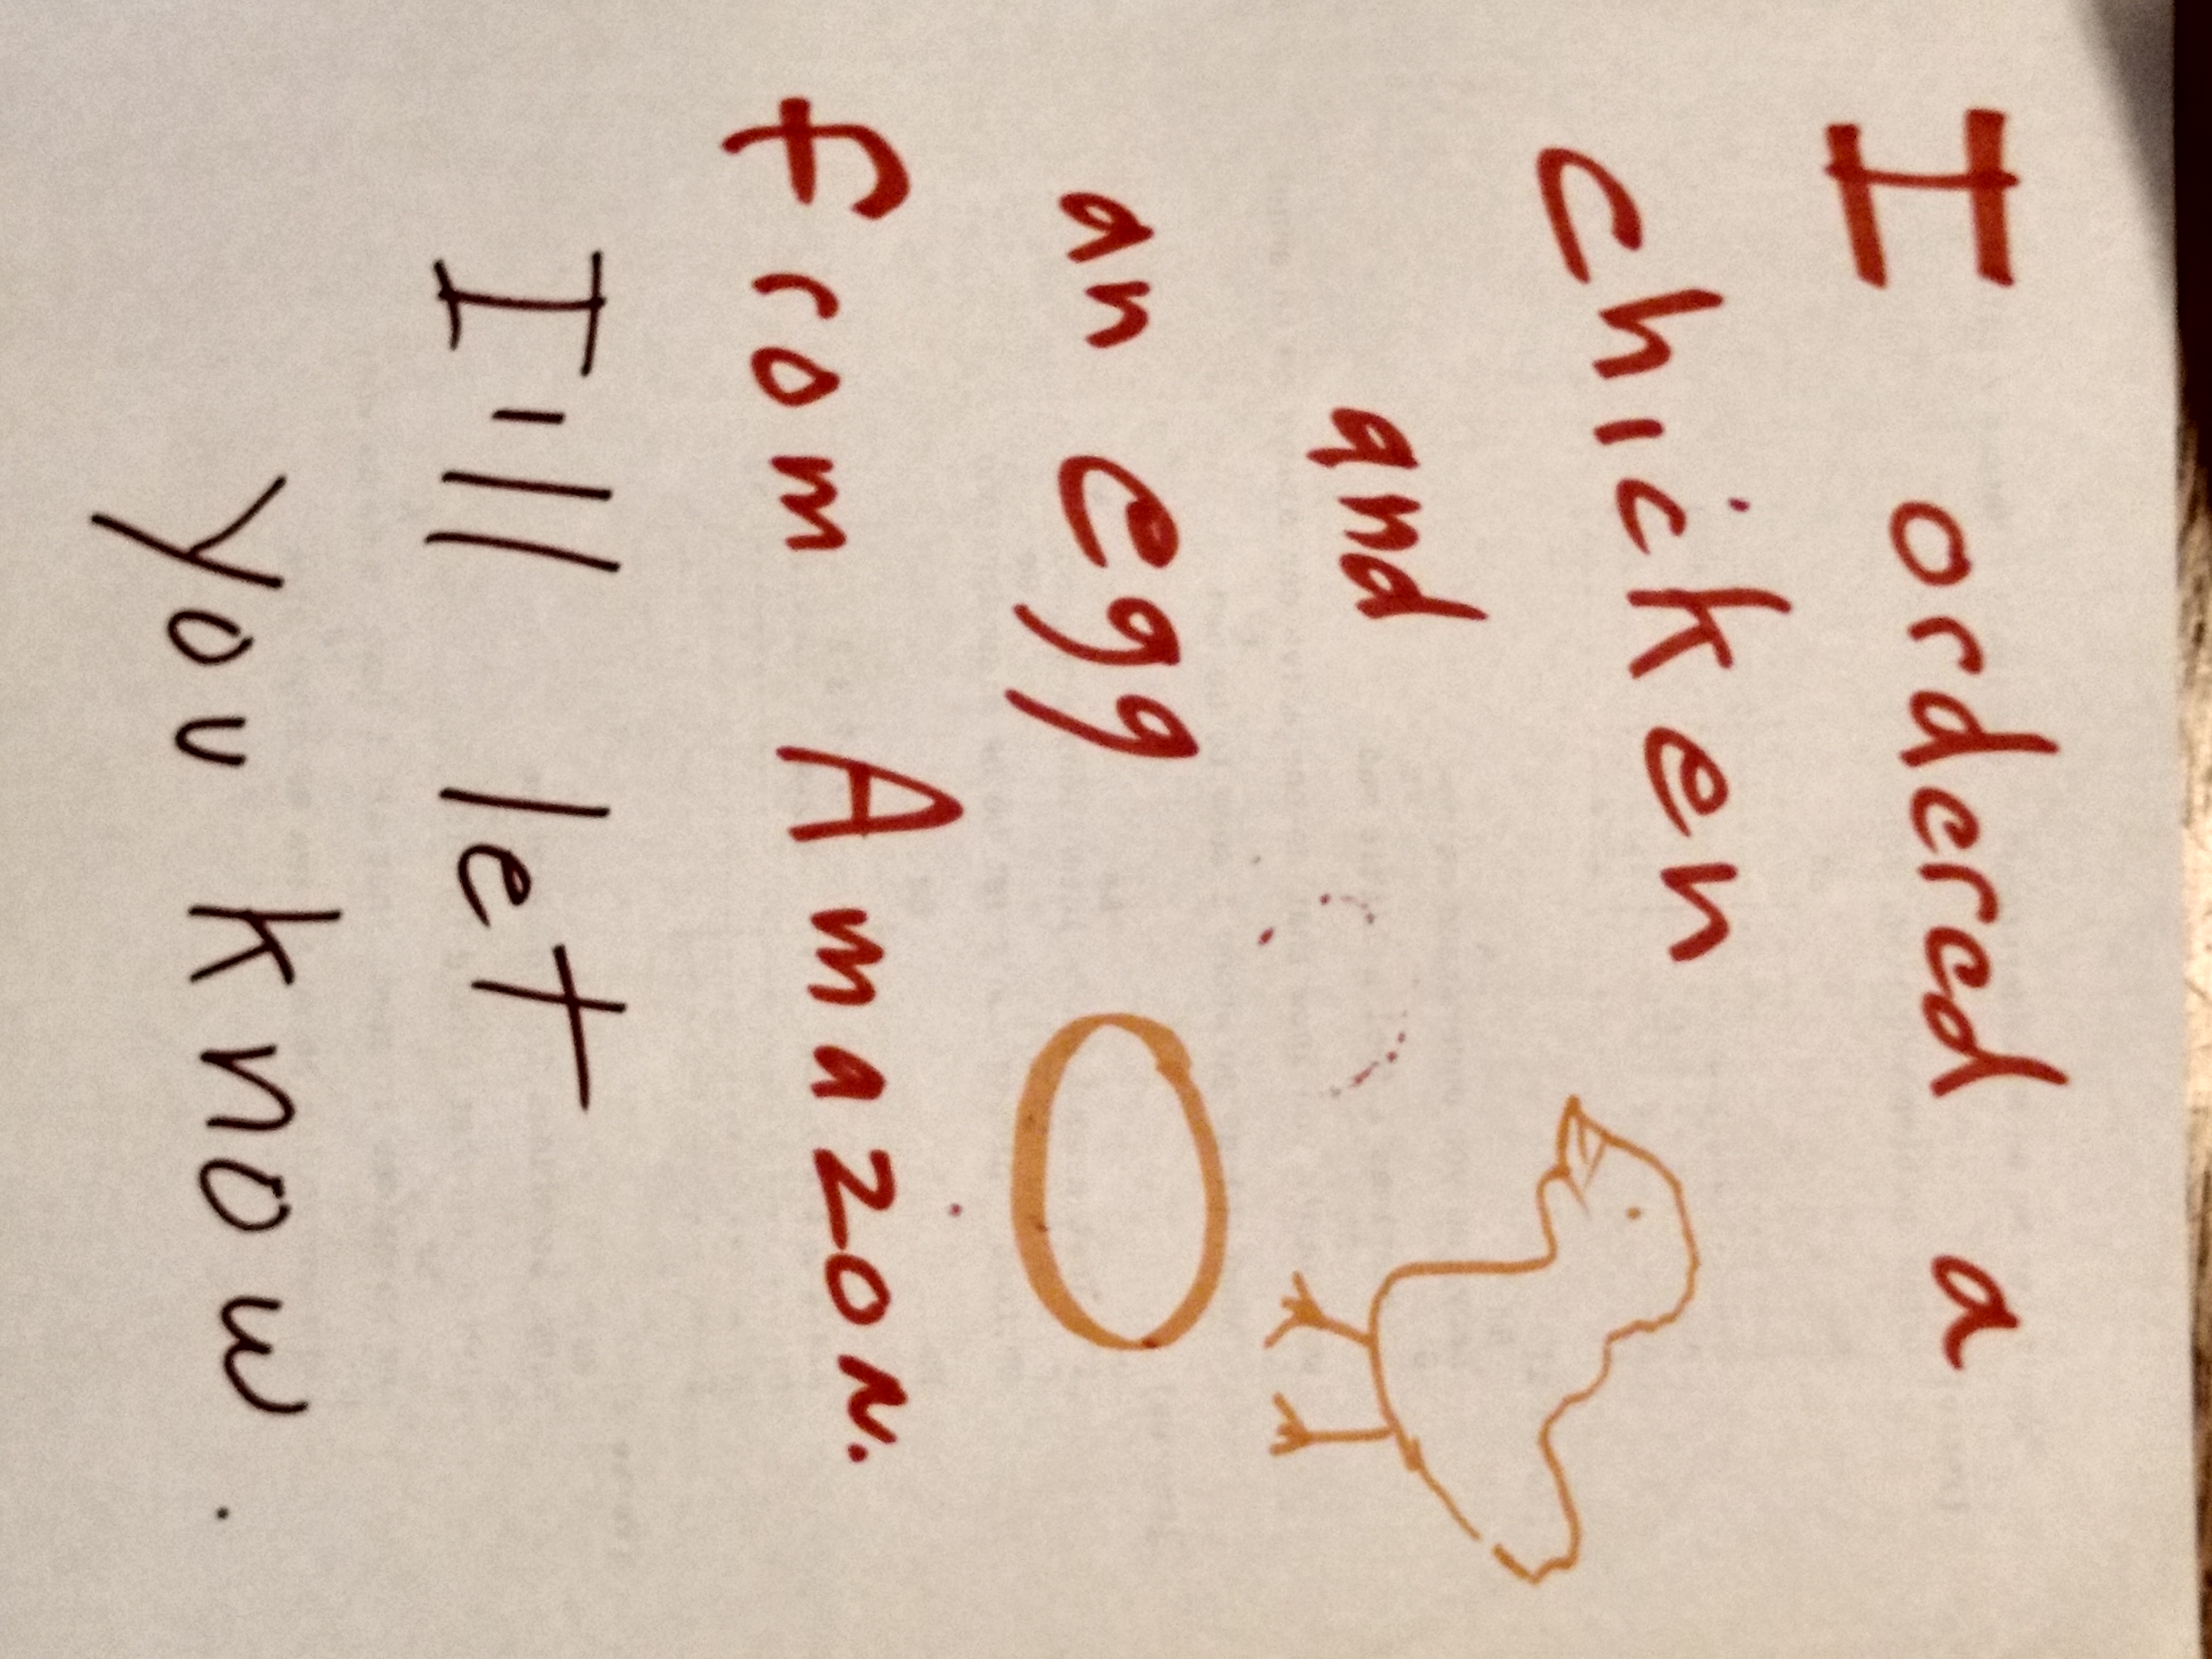 I ordered a
chicken
and
an egg
from Amazon.
I'll let
you know.